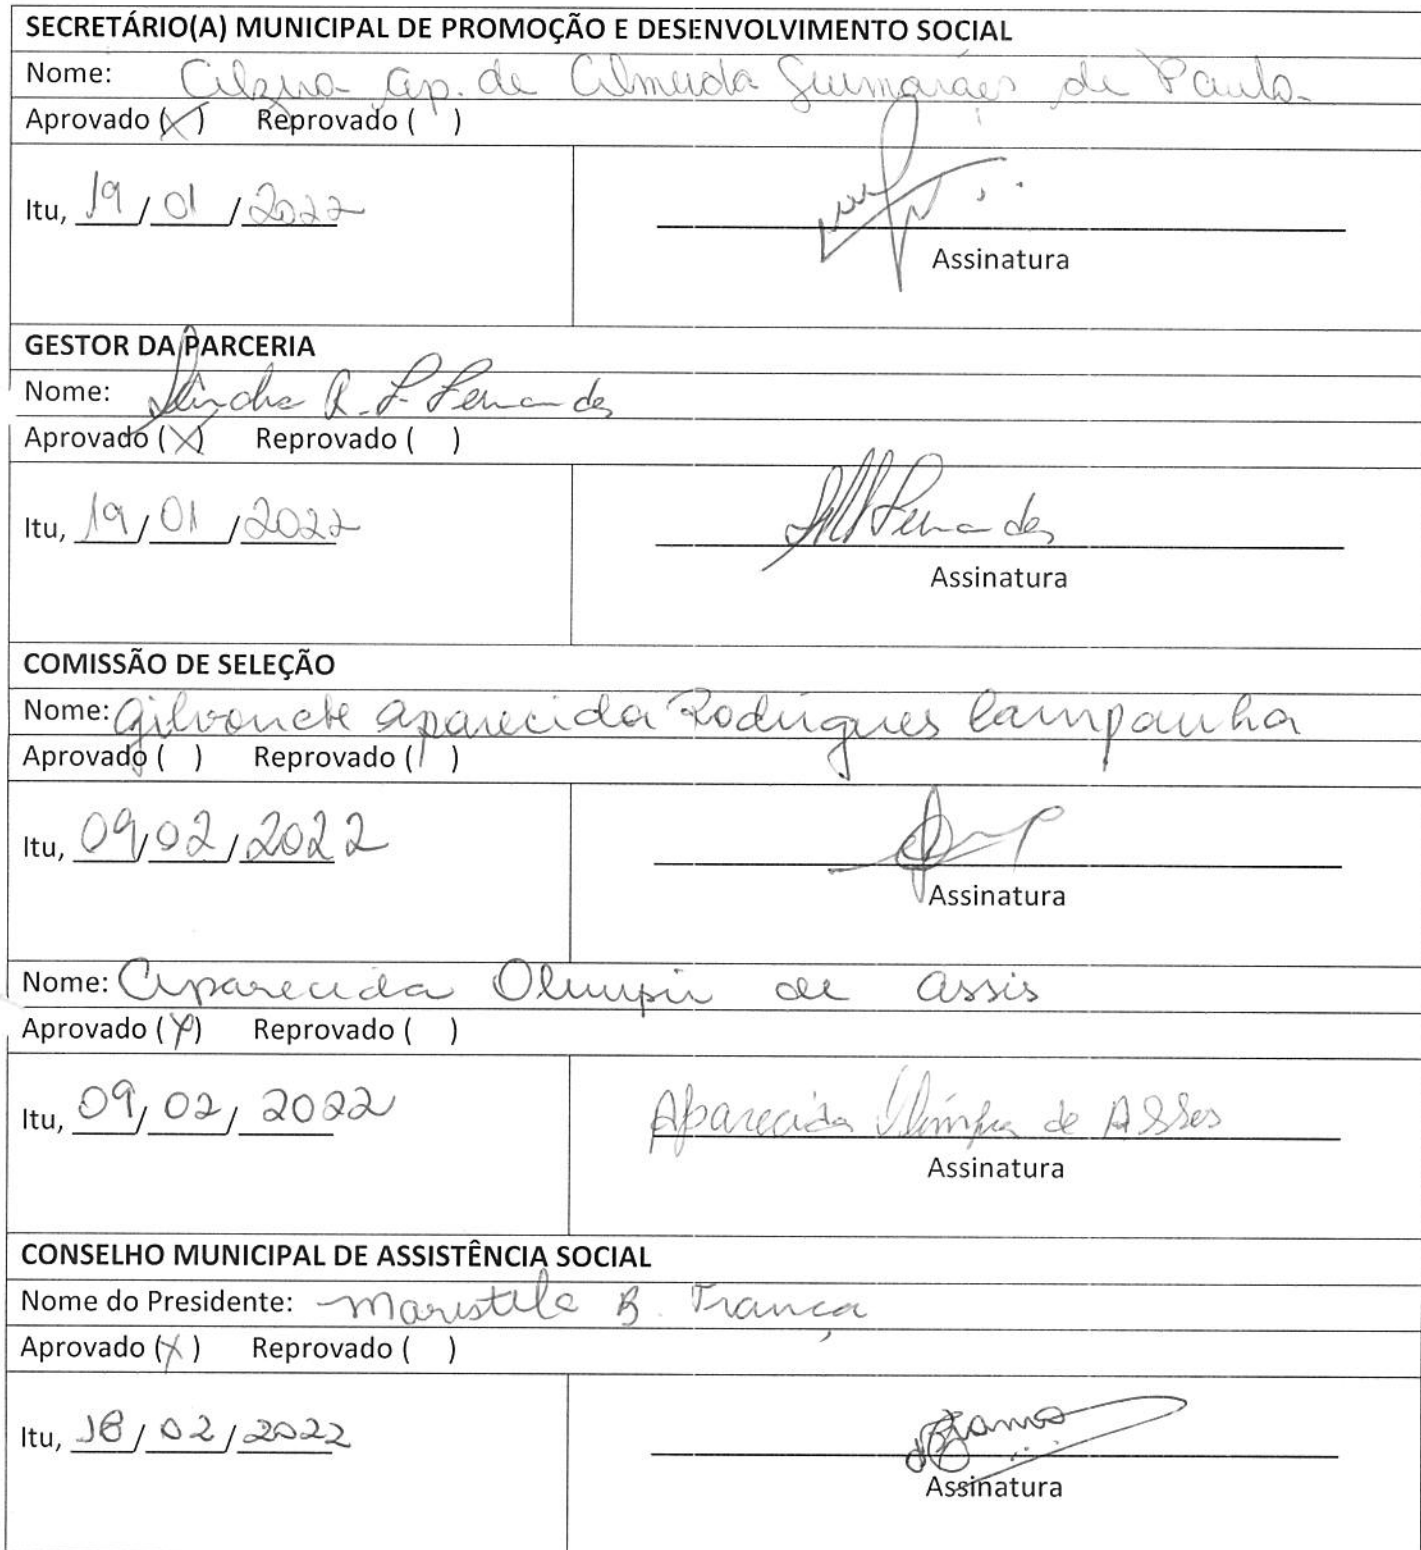 SECRETÁRIO(A) MUNICIPAL DE PROMOÇÃO E DESENVOLVIMENTO SOCIAL
Nome: Ap. de Almeida Guimarães de Paula
Aprovado (X) Reprovado ( )
Itu, 19/01/2022
Assinatura
GESTOR DA PARCERIA
Nome: R. F. Fernandes
Aprovado (X) Reprovado ( )
Itu, 19/01/2022
Fernandes
Assinatura
COMISSÃO DE SELEÇÃO
Nome: Aparecida Rodrigues Campanha
Aprovado ( ) Reprovado ( )
Itu, 09/02/2022
Assinatura
Nome: Aparecida Olimpia de Assis
Aprovado (X) Reprovado ( )
Itu, 09/02/2022
Aparecida Olímpia de Asses
Assinatura
CONSELHO MUNICIPAL DE ASSISTÊNCIA SOCIAL
Nome do Presidente: Maristela B. França
Aprovado (X) Reprovado ( )
Itu, 18/02/2022
Assinatura